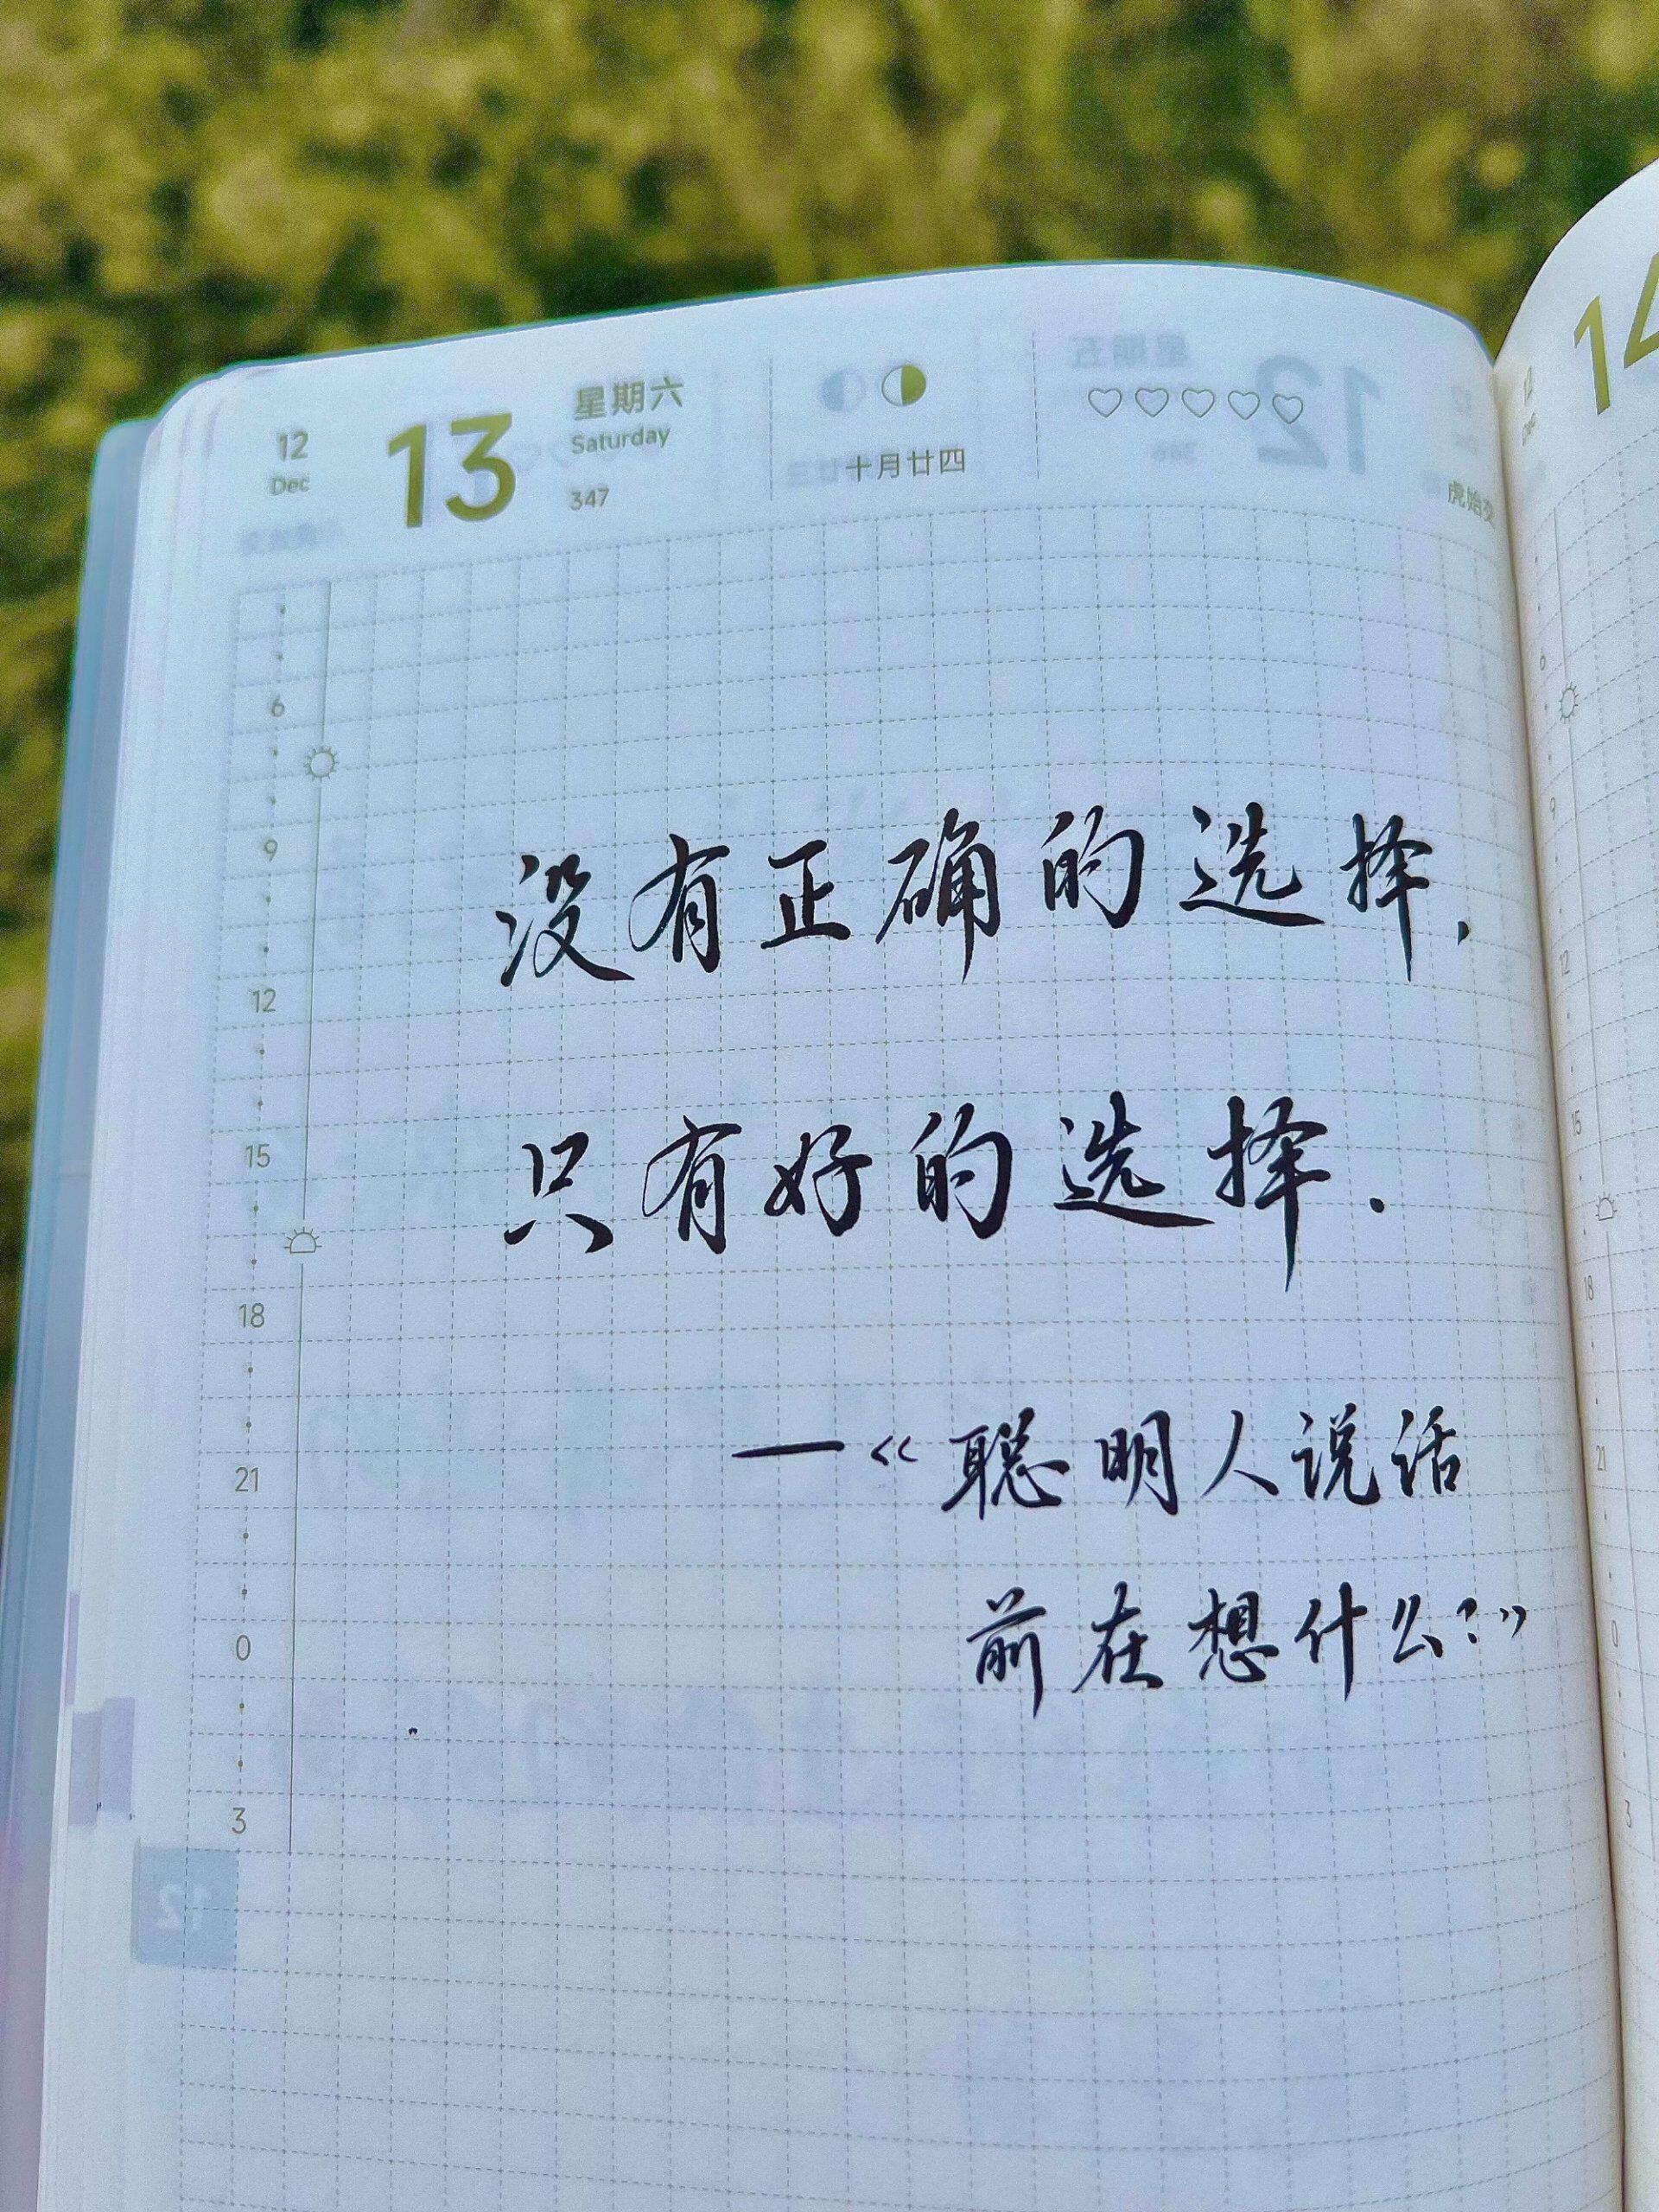 12
Dec
13
星期六
Saturday
347
十月廿四
虎始交
6
9
12
15
18
21
0
3
没有正确的选择,
只有好的选择.
—《聪明人说话
前在想什么?》
12
Dec
14
6
9
12
15
18
21
0
3